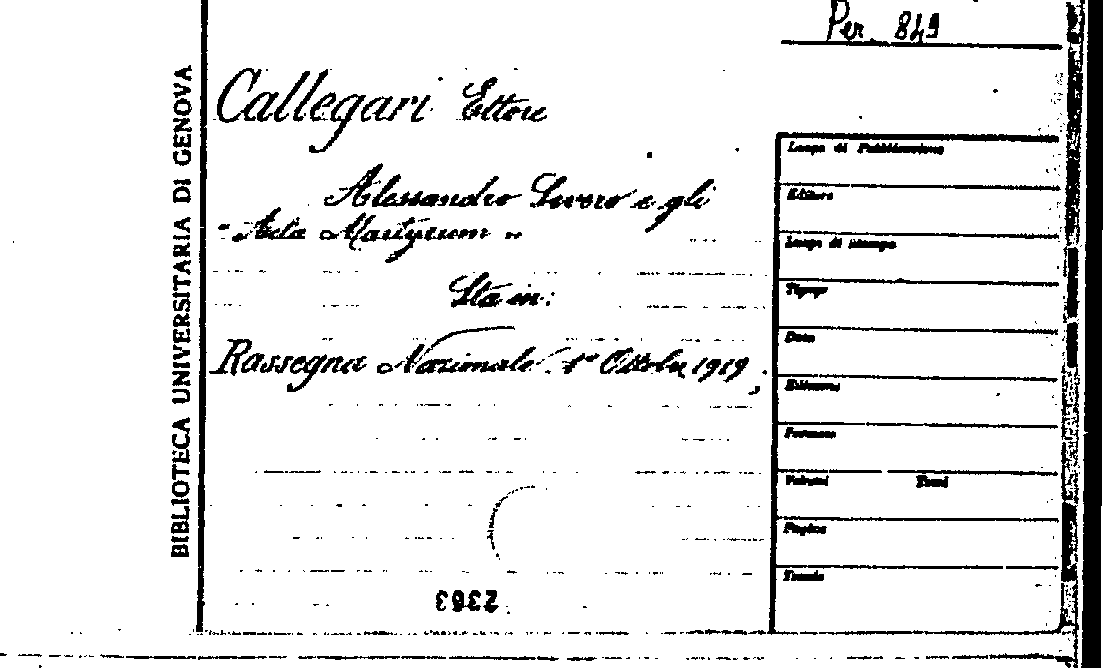 Per. 849
BIBLIOTECA UNIVERSITARIA DI GENOVA
Callegari Ettore
Alessandro Severo e gli
"Acta Martyrum"
Sta in:
Rassegna Nazionale. 1° Ottobre 1919,
Luogo di Pubblicazione
Editore
Luogo di stampa
Tipogr
Data
Edizione
Formato
Volumi Tomi
Pagine
Tavole
2363